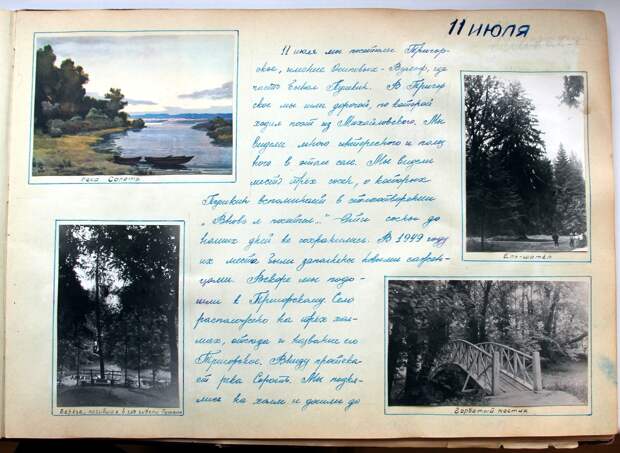 11 июля
11 июля мы посетили Тригор-
ское, имение Осиповых-Вульф, где
часто бывал Пушкин. В Тригор
ское мы шли дорогой, по которой
ходил поэт из Михайловского. Мы
видели много интересного и
в этом селе. Мы видели
место трёх сосен, о которых
Пушкин вспоминает в стихотворении
„Вновь я посетил..." Эти сосны до
наших дней не сохранились. В 1949 году
их места были заполнены новыми сажен-
цами. Вскоре мы подо-
шли к Тригорскому. Село
расположено на трёх хол-
мах, отсюда и название его
Тригорское. Внизу протека-
ет река Сороть. Мы подня-
лись на холм и дошли до
Река Сороть
Ель-шатёр
Берёза, в год гибели Пушкина
Горбатый мостик